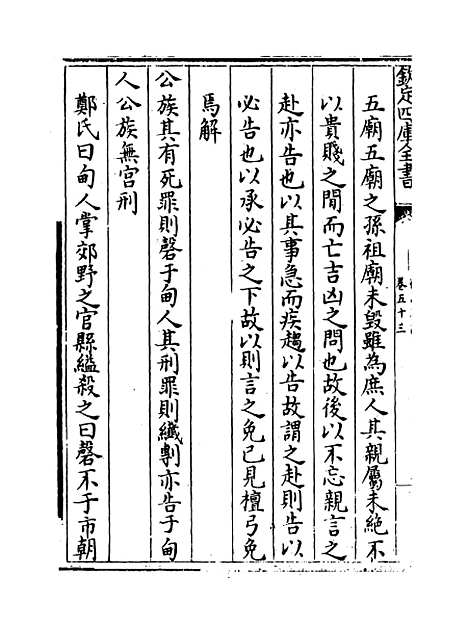 欽定四庫全書
卷五十三
五廟五廟之孫祖廟未毀雖為庶人其親屬未絶不
以貴賤之間而亡吉凶之問也故後以不忘親言之
赴亦告也以其事急而疾趨以告故謂之赴則告以
必告也以承必告之下故以則言之免已見檀弓免
焉解
公族其有死罪則磬于甸人其刑罪則纖剸亦告于甸
人公族無宫刑
鄭氏曰甸人掌郊野之官縣縊殺之曰磬不于市朝